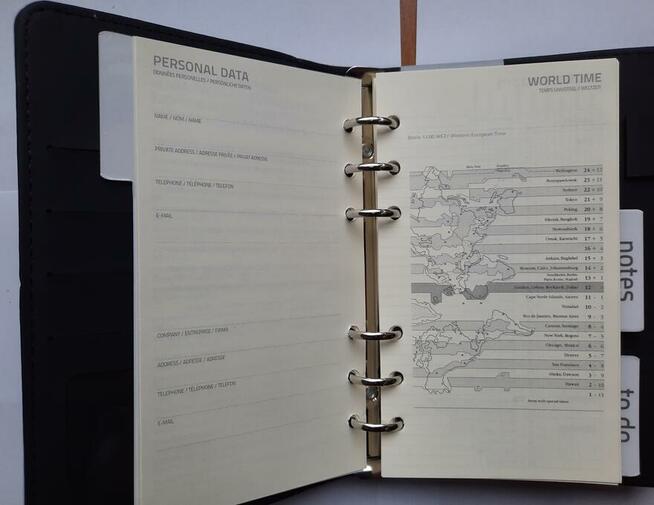 PERSONAL DATA
DONNÉES PERSONELLES / PERSÖNLICHE DATEN
NAME / NOM / NAME
PRIVATE ADDRESS / ADRESSE PRIVÉE / PRIVAT ADRESSE
TELEPHONE / TÉLÉPHONE / TELEFON
E-MAIL
COMPANY / ENTREPRISE / FIRMA
ADDRESS / ADRESSE / ADRESSE
TELEPHONE / TÉLÉPHONE / TELEFON
E-MAIL
WORLD TIME
TEMPS UNIVERSEL / WELTZEIT
Western European Time
Wellington 24 + 12
23 + 11
Sydney 22 + 10
Tokyo 21 + 9
Peking 20 + 8
Bangkok 19 + 7
18 + 6
Omsk, Karatschi 17 + 5
16 + 4
Ankara, Baghdad 15 + 3
Moscow, Cairo, Johannesburg 14 + 2
Stockholm, Berlin,
Paris, Rome, Madrid 13 + 1
London, Lisbon, Reykjavik, Dakar 12
Cape Verde Islands, Azores 11 - 1
Trinidad 10 - 2
Rio de Janeiro, Buenos Aires 9 - 3
Caracas, Santiago 8 - 4
New York, Bogota 7 - 5
Chicago, Mexico 6 - 6
Denver 5 - 7
San Francisco 4 - 8
Alaska, Dawson 3 - 9
Hawaii 2 - 10
1 - 11
Areas with special times
notes
to do